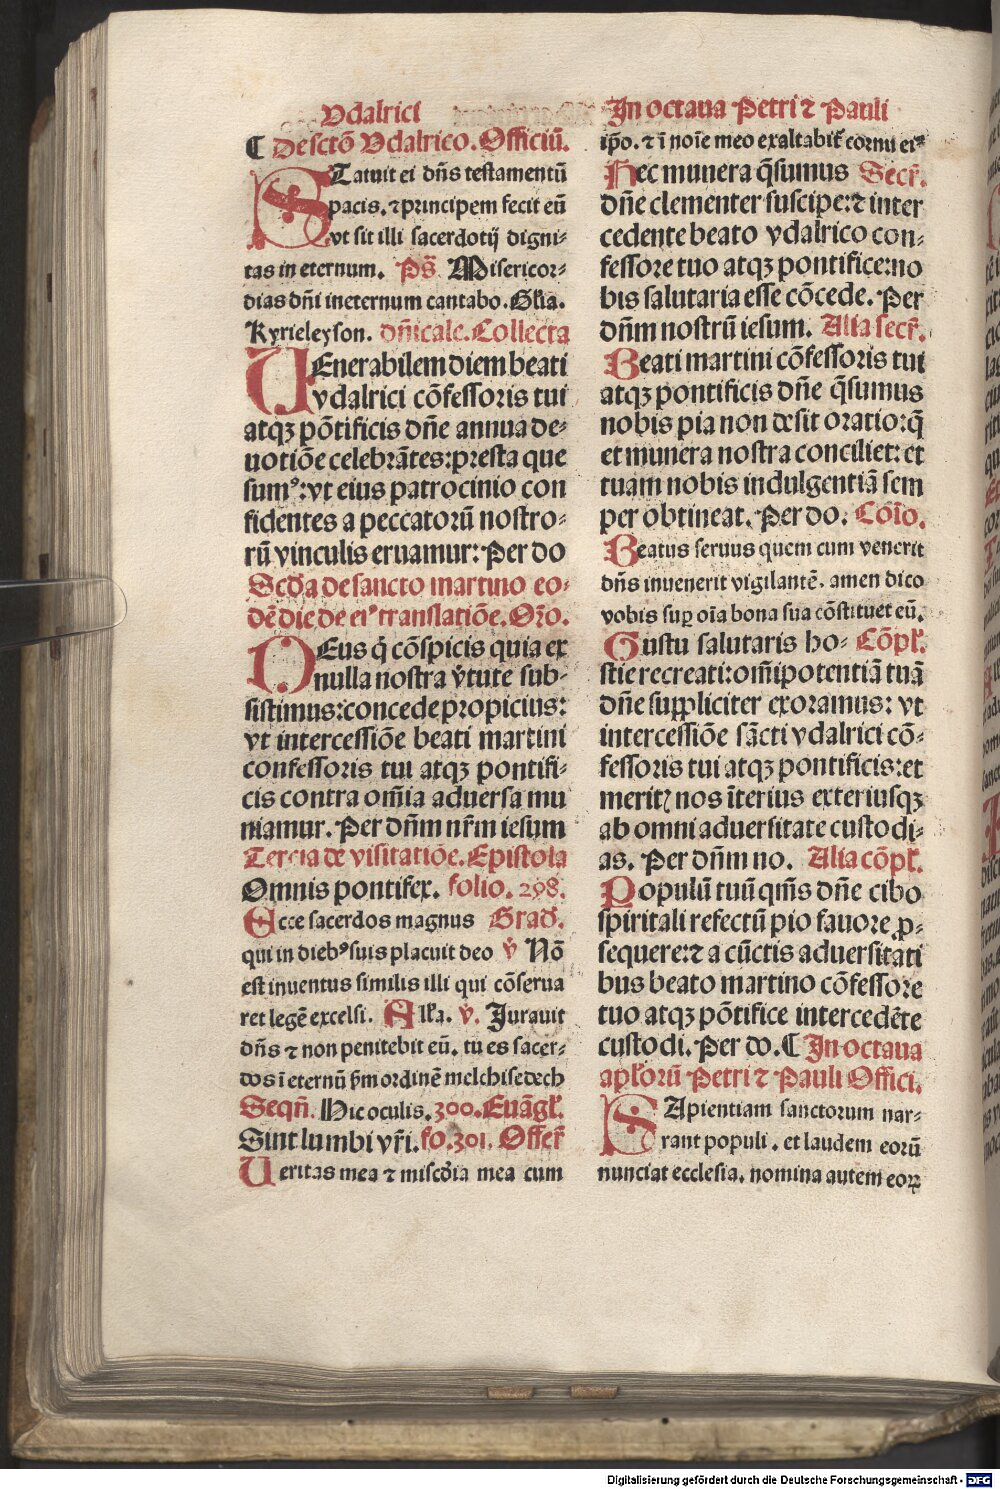 Udalrici
¶ De sctō Udalrico. Officiū.
STatuit ei dñs testamentū
pacis. ⁊ principem fecit eū
vt sit illi sacerdotij digni⸗
tas in eternum. Ps̄ Misericor⸗
dias dñi in eternum cantabo. Gl̄ia.
Kyrieleyson. dñicale. Collecta
UEnerabilem diem beati
vdalrici cōfessoris tui
atqꝫ pōtificis dñe annua de⸗
uotiōe celebrātes: presta que
sumꝰ: vt eius patrocinio con
fidentes a peccatorū nostro⸗
rū vinculis eruamur: Per do
Scd̄a de sancto martino eo⸗
dē die de eiꝰ translatiōe. Or̄o.
DEus q̇ cōspicis quia ex
nulla nostra v̓tute sub⸗
sistimus: concede propicius:
vt intercessiōe beati martini
confessoris tui atqꝫ pontifi⸗
cis contra om̄ia aduersa mu
niamur. Per dñm nr̄m iesum
Tercia de visitatiōe. Epistola
Omnis pontifex. folio. 298.
Ecce sacerdos magnus Grad̄.
qui in diebꝰ suis placuit deo v̓ Nō
est inuentus similis illi qui cōserua
ret legē excelsi. Alľa. v̓. Jurauit
dñs ⁊ non penitebit eū. tu es sacer⸗
dos ī eternū s̄m ordinē melchisedech
Seqñ. Hic oculis. 300. Euāgľ.
Sint lumbi vr̄i. fo. 301. Offer̄
Ueritas mea ⁊ miscd̄ia mea cum
In octaua Petri ⁊ Pauli
ip̄o. ⁊ ī noīe meo exaltabit̄ cornu eiꝰ
Hec munera q̄sumus Secr̄.
dñe clementer suscipe: ⁊ inter
cedente beato vdalrico con⸗
fessore tuo atqꝫ pontifice: no
bis salutaria esse cōcede. Per
dñm nostrū iesum. Alia secr̄.
Beati martini cōfessoris tui
atqꝫ pontificis dñe q̄sumus
nobis pia non desit oratio: q̄
et munera nostra conciliet: et
tuam nobis indulgentiā sem
per obtineat. Per do. Cōīo.
Beatus seruus quem cum venerit
dñs inuenerit vigilantē. amen dico
vobis sup̱ oīa bona sua cōstituet eū.
Gustu salutaris ho⸗ Cōpľ.
stie recreati: om̄ipotentiā tuā
dñe suppliciter exoramus: vt
intercessiōe sācti vdalrici cō⸗
fessoris tui atqꝫ pontificis: et
meritꝭ nos īterius exteriusqꝫ
ab omni aduersitate custodi⸗
as. Per dñm no. Alia cōpľ.
Populū tuū qm̄s dñe cibo
spiritali refectū pio fauore ꝓ⸗
sequere: ⁊ a cūctis aduersitati
bus beato martino cōfessore
tuo atqꝫ pōtifice intercedēte
custodi. Per do. ¶ In octaua
apľorū Petri ⁊ Pauli Offici.
SApientiam sanctorum nar⸗
rant populi. et laudem eorū
nunciat ecclesia. nomina autem eoꝝ
Digitalisierung gefördert durch die Deutsche Forschungsgemeinschaft - DFG